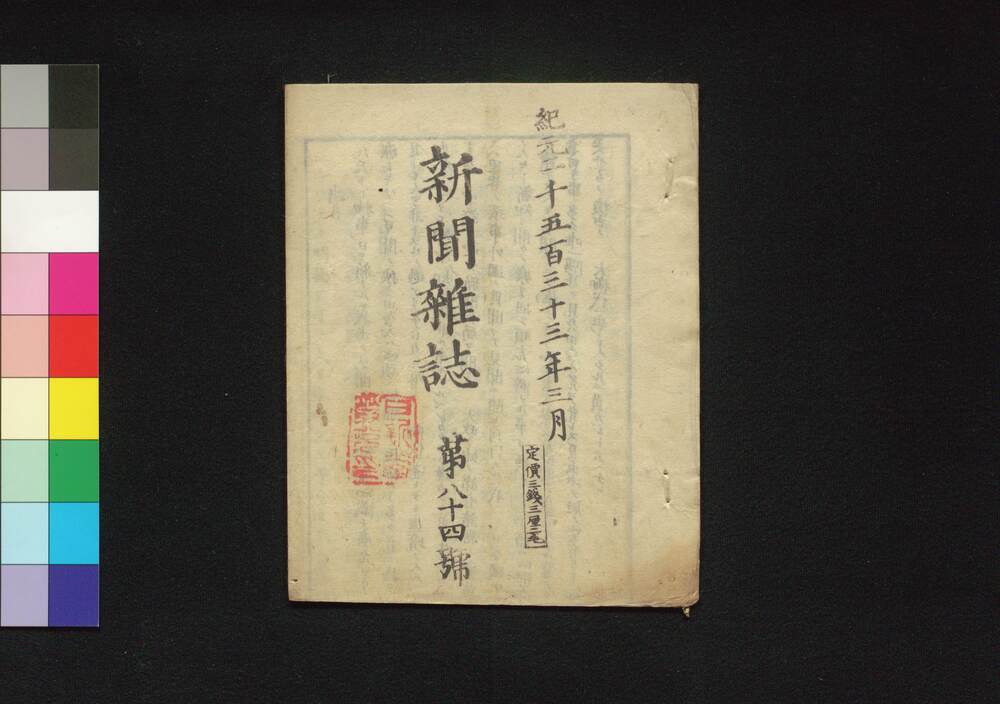 紀元二千五百三十三年三月
定價三錢三厘三毛
新聞雜誌
第八十四號